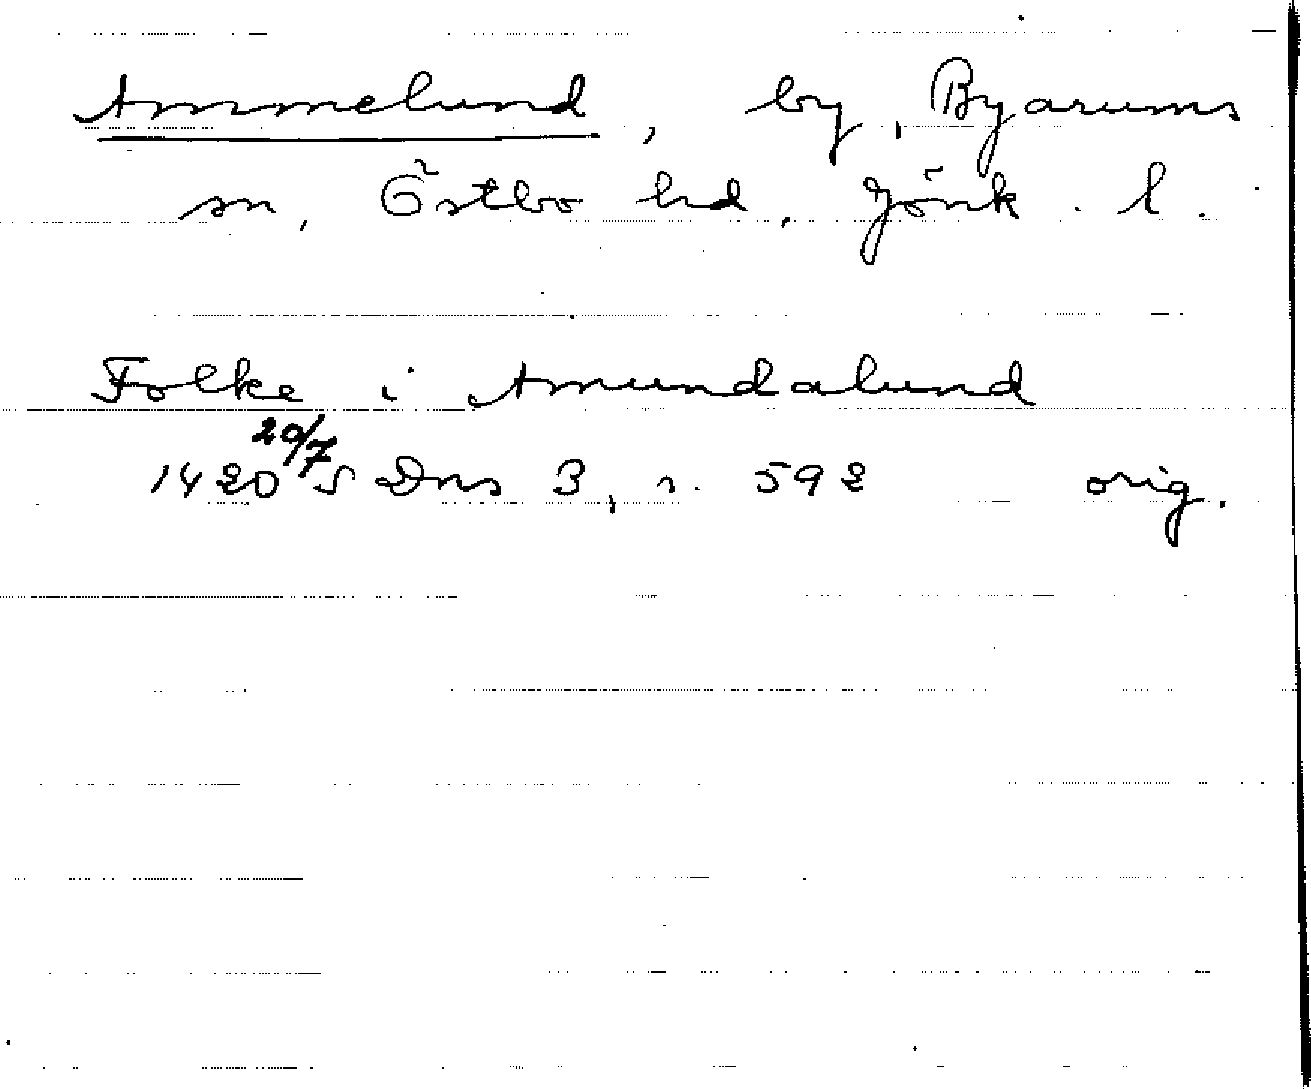 Ammelund, by, Byarums
sn, Östbo hd, Jönk. l.
Folke i Amundalund
20/7
1420 S Dns 3, s. 592 orig.